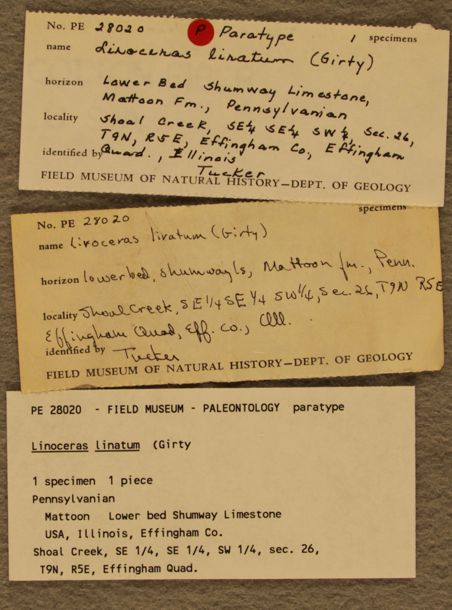 No. PE 28020 P Paratype 1 specimens
name Liroceras liratum (Girty)
horizon Lower Bed Shumway Limestone,
Mattoon Fm., Pennsylvanian
locality Shoal Creek, SE¼ SE¼ SW¼, Sec. 26,
T9N, R5E, Effingham Co, Effingham
identified by Quad., Illinois
Tucker
FIELD MUSEUM OF NATURAL HISTORY—DEPT. OF GEOLOGY
No. PE 28020 specimens
name Liroceras liratum (Girty)
horizon lower bed, Shumway ls, Mattoon fm., Penn.
locality Shoal Creek, SE 1/4 SE 1/4 SW 1/4, Sec. 26, T9N R5E
Effingham Quad, Eff. Co., Ill.
identified by Tucker
FIELD MUSEUM OF NATURAL HISTORY—DEPT. OF GEOLOGY
PE 28020 - FIELD MUSEUM - PALEONTOLOGY paratype
Linoceras linatum (Girty
1 specimen 1 piece
Pennsylvanian
Mattoon Lower bed Shumway Limestone
USA, Illinois, Effingham Co.
Shoal Creek, SE 1/4, SE 1/4, SW 1/4, sec. 26,
T9N, R5E, Effingham Quad.